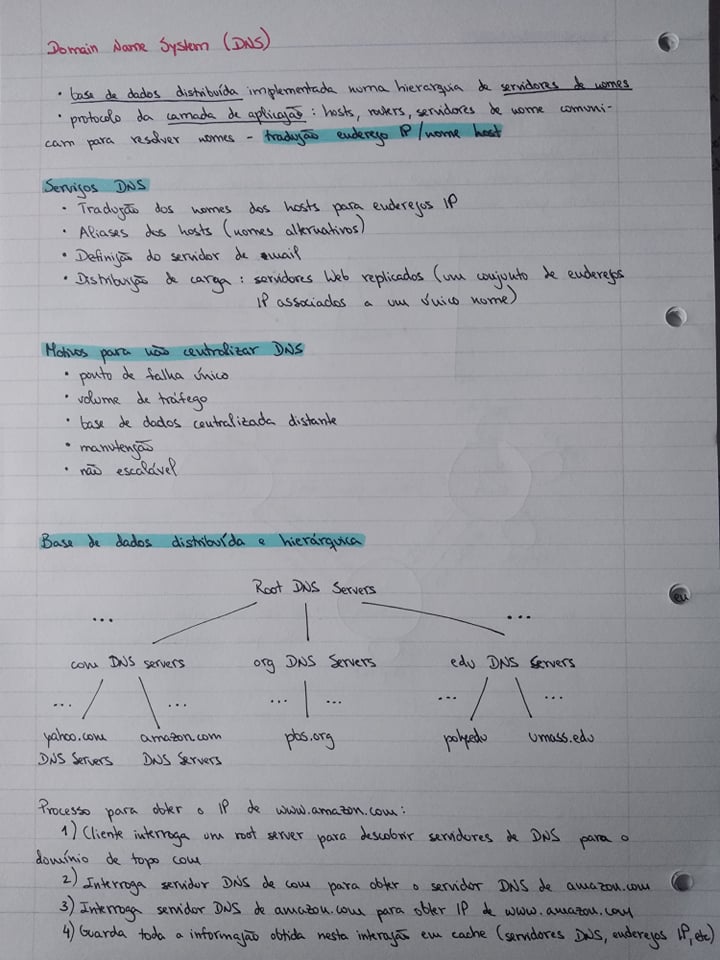 Domain Name System (DNS)
• base de dados distribuída implementada numa hierarquia de servidores de nomes
• protocolo da camada de aplicação : hosts, routers, servidores de nome comuni-
cam para resolver nomes - tradução endereço IP/nome host
Serviços DNS
• Tradução dos nomes dos hosts para endereços IP
• Aliases dos hosts (nomes alternativos)
• Definição do servidor de email
• Distribuição de carga : servidores Web replicados (um conjunto de endereços
IP associados a um único nome)
Motivos para não centralizar DNS
• ponto de falha único
• volume de tráfego
• base de dados centralizada distante
• manutenção
• não escalável
Base de dados distribuída e hierárquica
Root DNS Servers
... ...
com DNS servers org DNS Servers edu DNS Servers
... ... ... ... ... ...
yahoo.com amazon.com pbs.org poly.edu umass.edu
DNS Servers DNS Servers
Processo para obter o IP de www.amazon.com :
1) Cliente interroga um root server para descobrir servidores de DNS para o
domínio de topo com
2) Interroga servidor DNS de com para obter o servidor DNS de amazon.com
3) Interroga servidor DNS de amazon.com para obter IP de www.amazon.com
4) Guarda toda a informação obtida nesta interação em cache (servidores DNS, endereços IP, etc)
eu